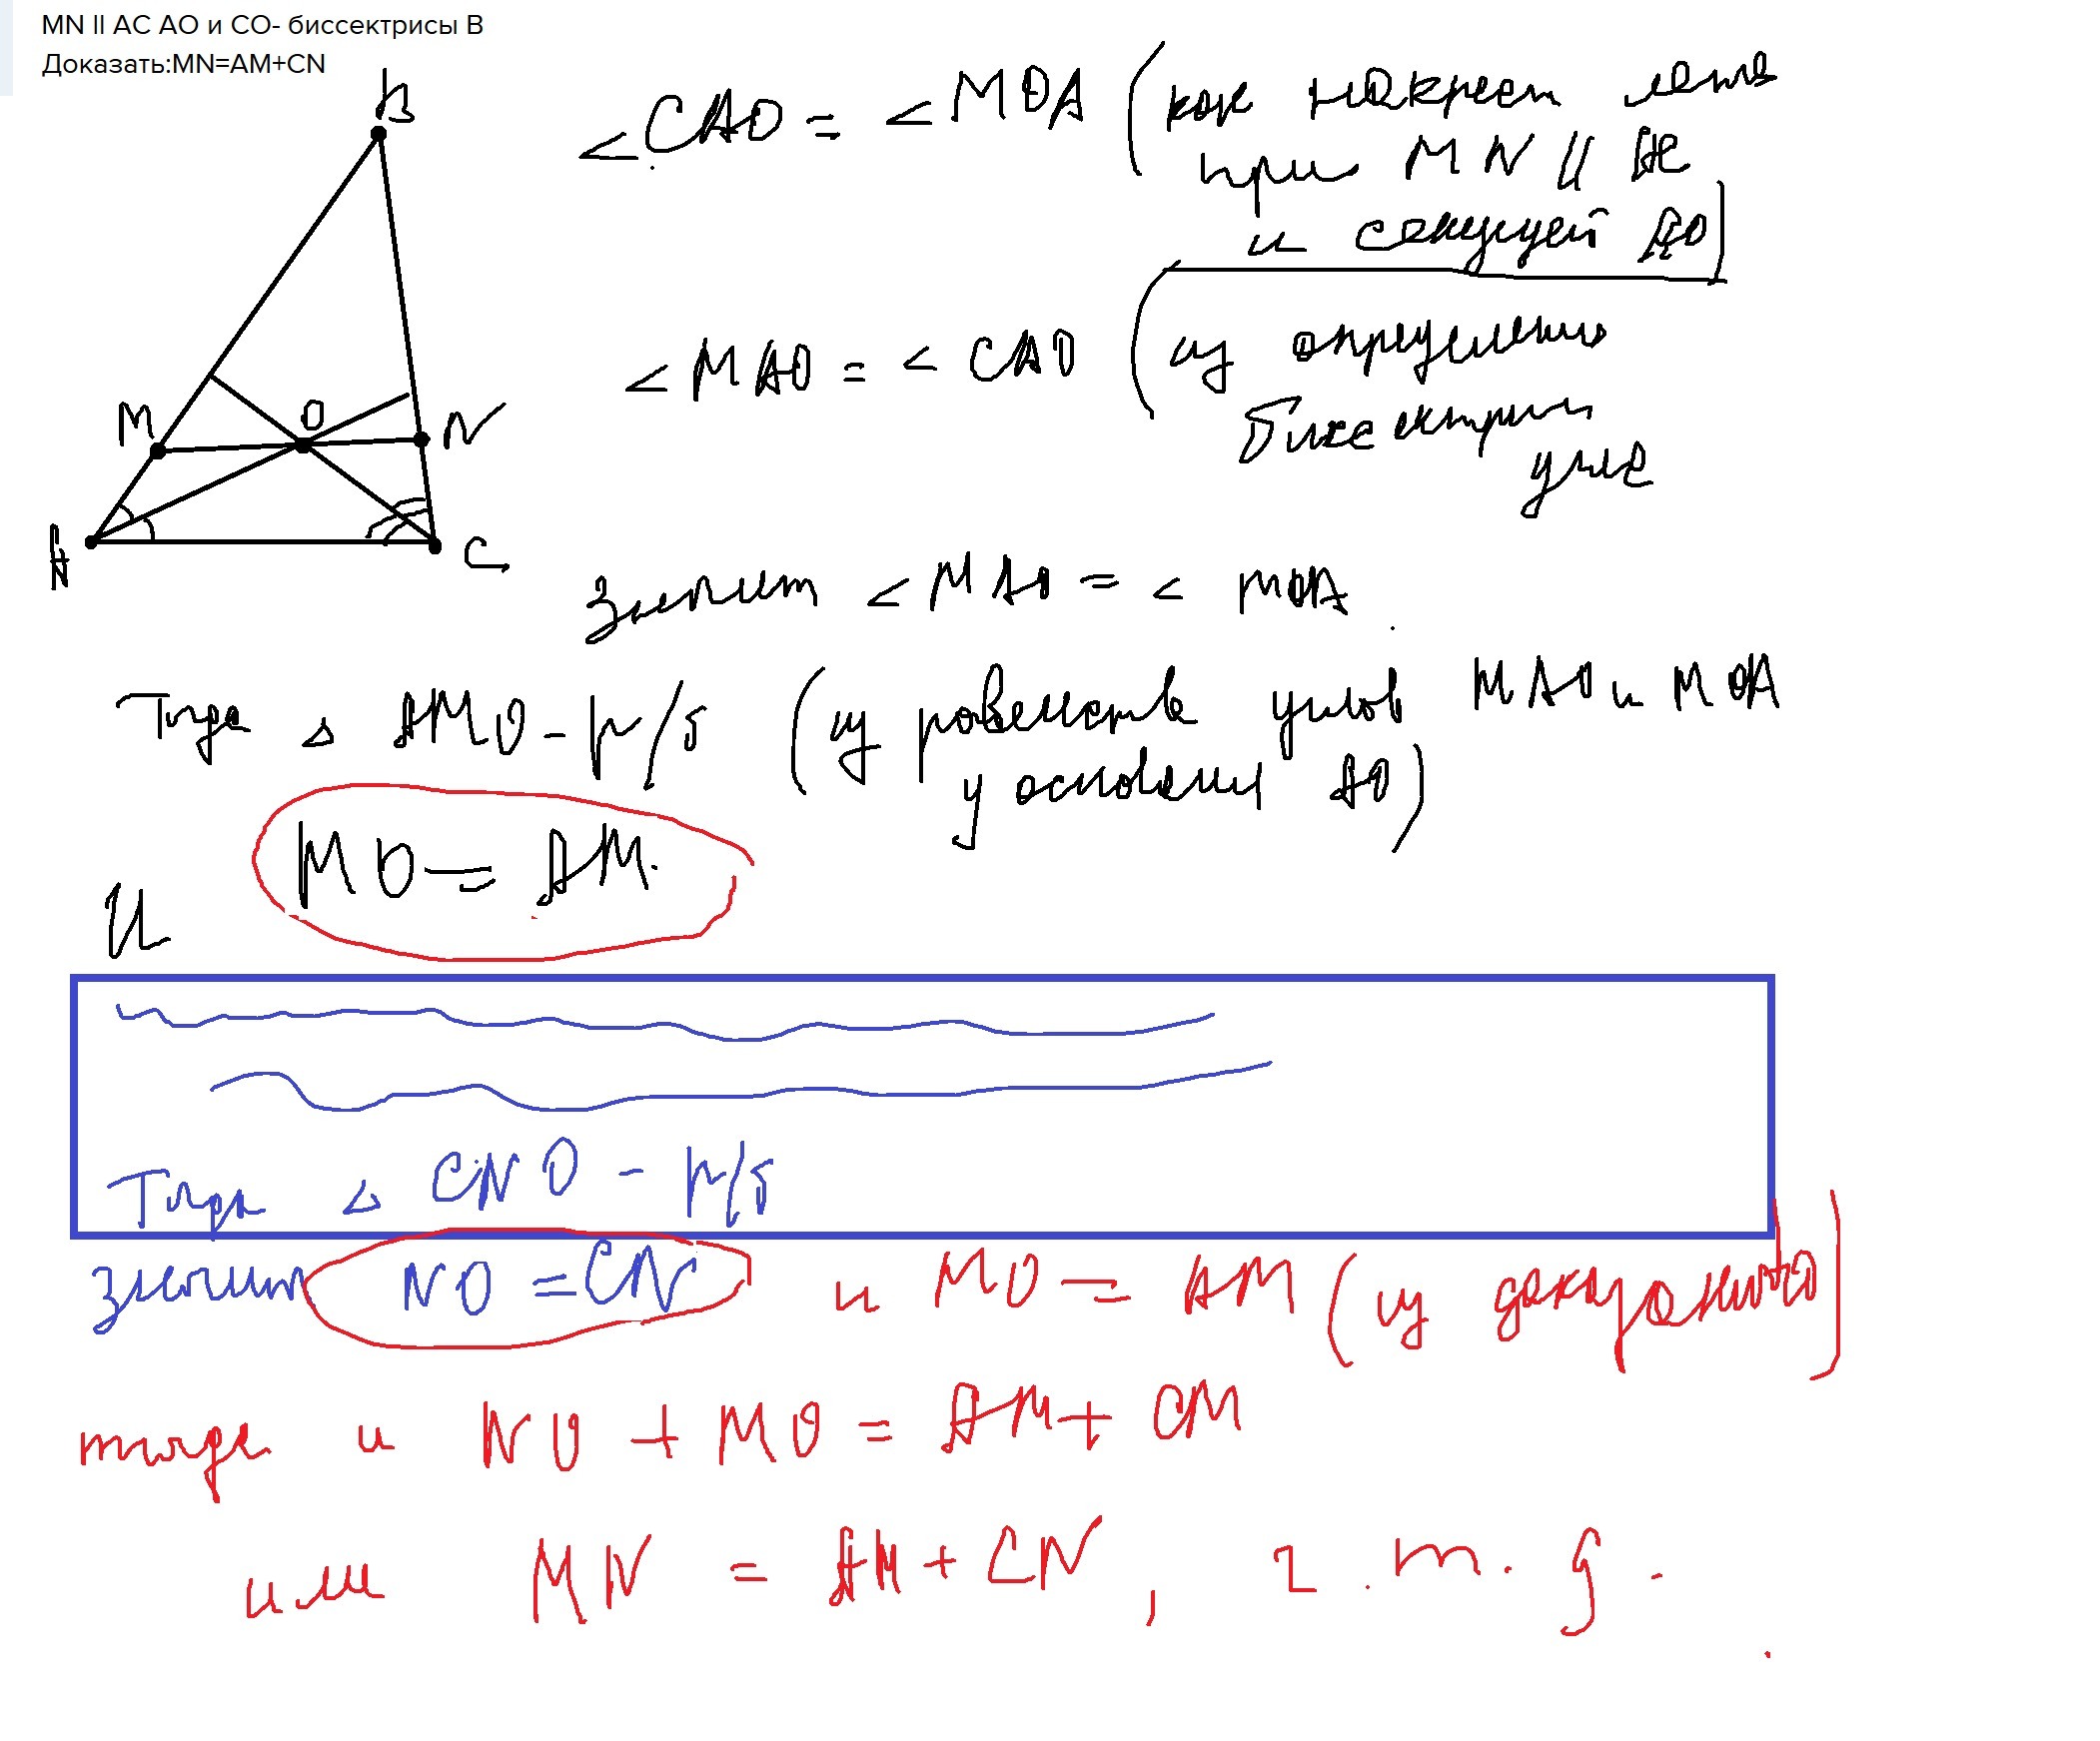 MN ll AC AO и CO- биссектрисы B
Доказать:MN=AM+CN
B
M
O
N
A
C
<CAO = <MOA (как накрест леж
при MN || AC
и секущей AO)
<MAO = <CAO (из определения
биссектрисы
угла
Значит <MAO = < MOA.
Тогда △ AMO - р/б (из равенства углов MAO и MOA
у основания AO)
И MO = AM.
Тогда △ CNO - р/б
значит NO = CN и MO = AM (из доказанного)
тогда и NO + MO = AM + CM
или MN = AM + CN, ч.т.д.